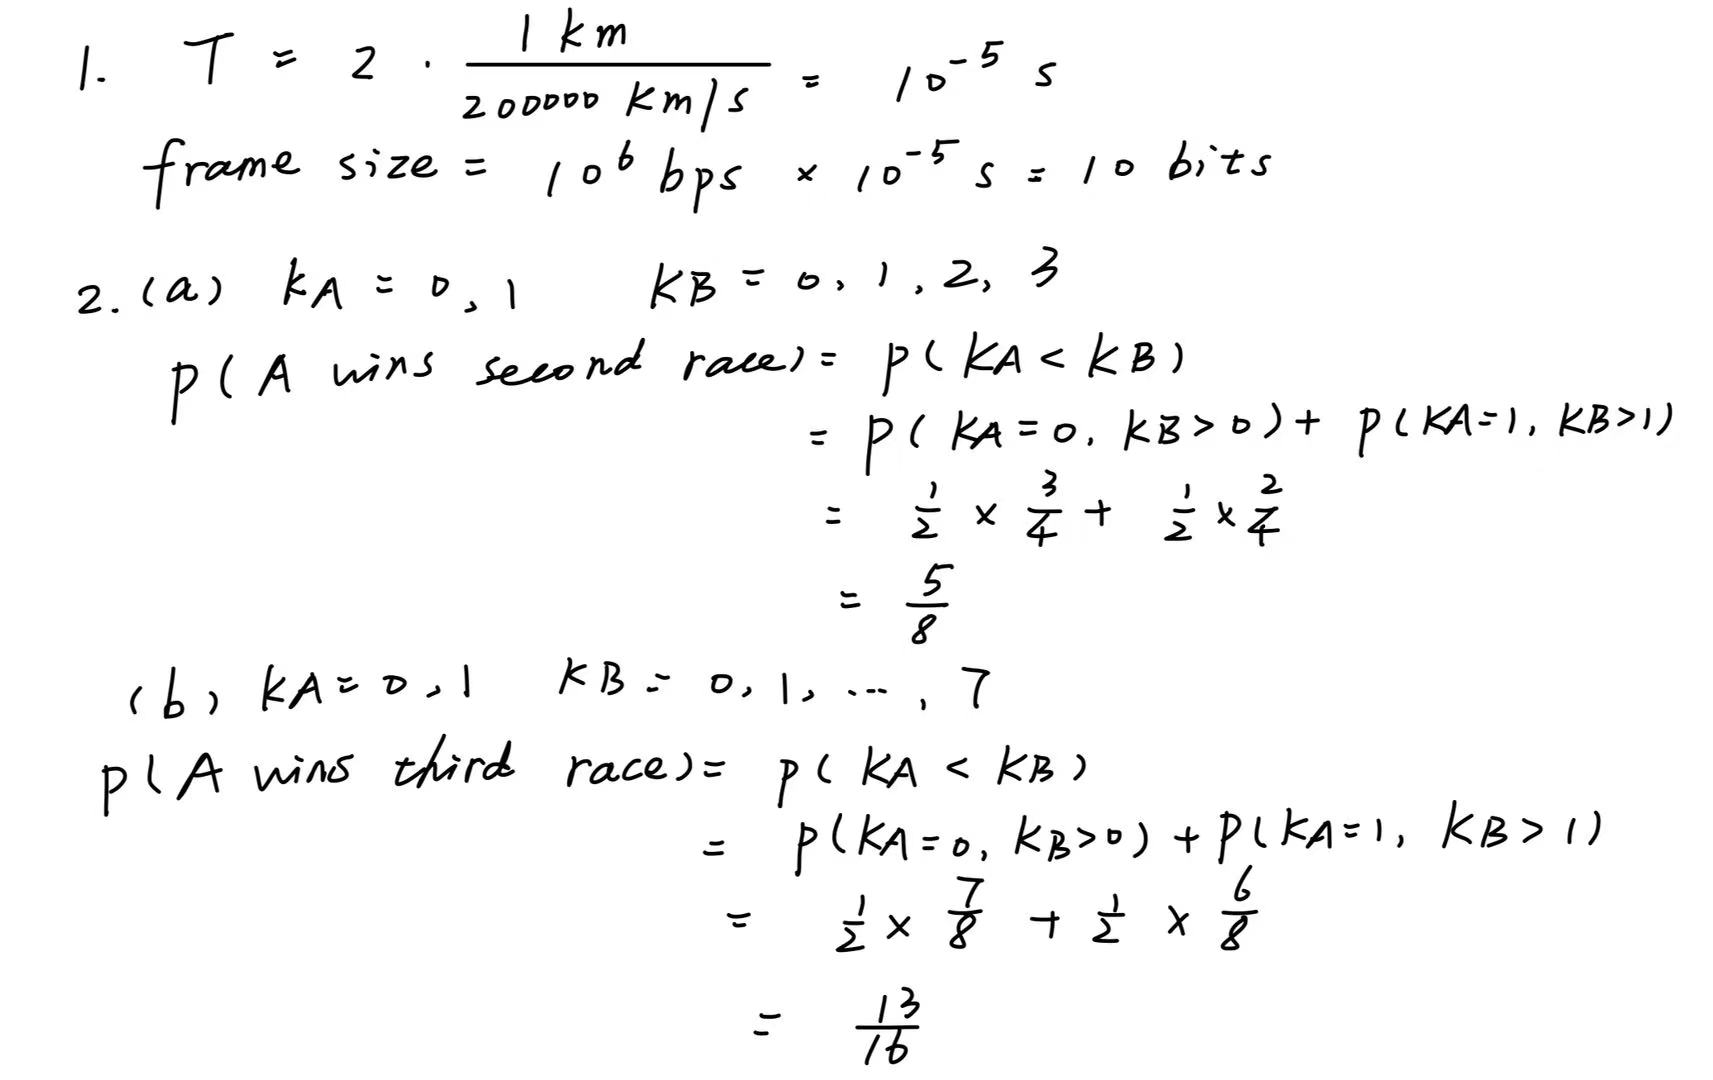 1. T = 2 · 1 km / 200000 km/s = 10⁻⁵ s
frame size = 10⁶ bps × 10⁻⁵ s = 10 bits
2. (a) KA = 0, 1 KB = 0, 1, 2, 3
P(A wins second race) = P(KA < KB)
= P(KA=0, KB>0) + P(KA=1, KB>1)
= 1/2 × 3/4 + 1/2 × 2/4
= 5/8
(b) KA = 0, 1 KB = 0, 1, ..., 7
P(A wins third race) = P(KA < KB)
= P(KA=0, KB>0) + P(KA=1, KB>1)
= 1/2 × 7/8 + 1/2 × 6/8
= 13/16